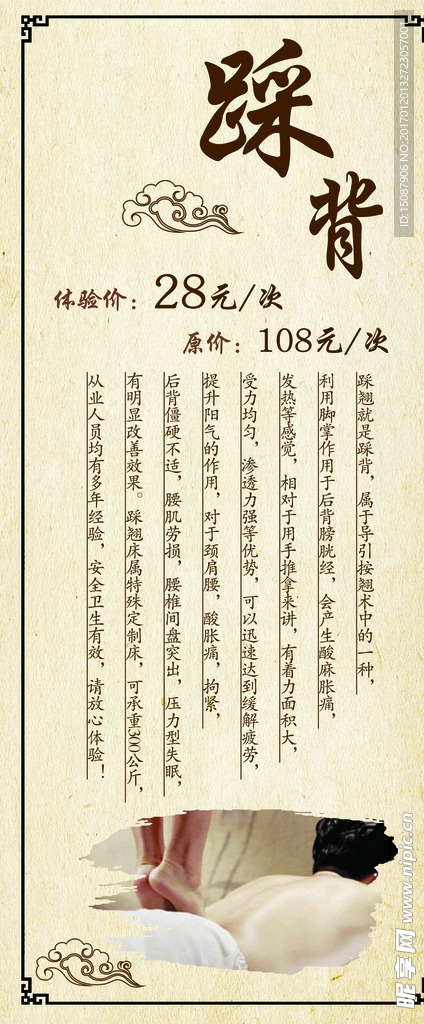 踩背
体验价：28元/次
原价：108元/次
踩翘就是踩背，属于导引按翘术中的一种，
利用脚掌作用于后背膀胱经，会产生酸麻胀痛，
发热等感觉，相对于用手推拿来讲，有着力面积大，
受力均匀，渗透力强等优势，可以迅速达到缓解疲劳，
提升阳气的作用，对于颈肩腰，酸胀痛，拘紧，
后背僵硬不适，腰肌劳损，腰椎间盘突出，压力型失眠，
有明显改善效果。踩翘床属特殊定制床，可承重300公斤，
从业人员均有多年经验，安全卫生有效，请放心体验！
ID:15087906 NO:20170120132723057001
昵享网 www.nipic.cn